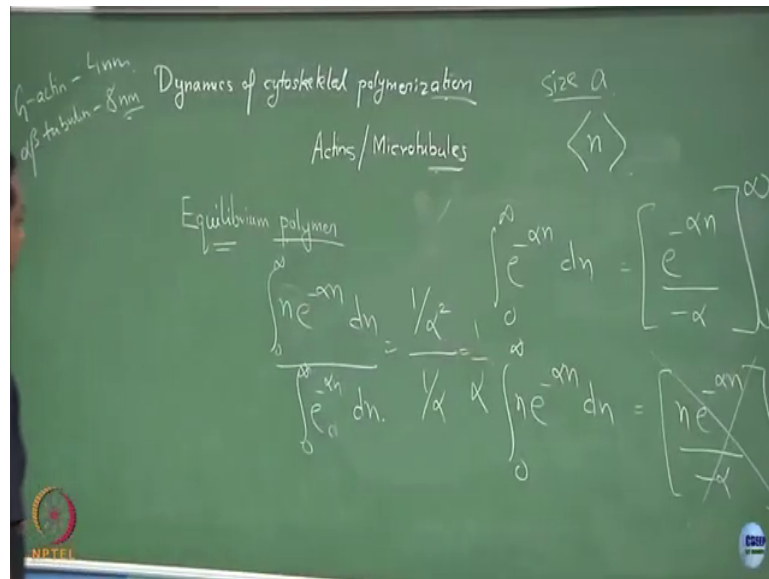 G-actin - 4nm.
αβ tubulin - 8nm
Dynamics of cytoskeletal polymerization
size a
Actins/Microtubules
⟨n⟩
Equilibrium polymer
∫₀^∞ e^{-αn} dn = [e^{-αn} / -α]₀^∞
∫₀^∞ n e^{-αn} dn / ∫₀^∞ e^{-αn} dn. = 1/α² / 1/α = 1/α
∫₀^∞ n e^{-αn} dn = [n e^{-αn} / -α]
NPTEL
CDEEP